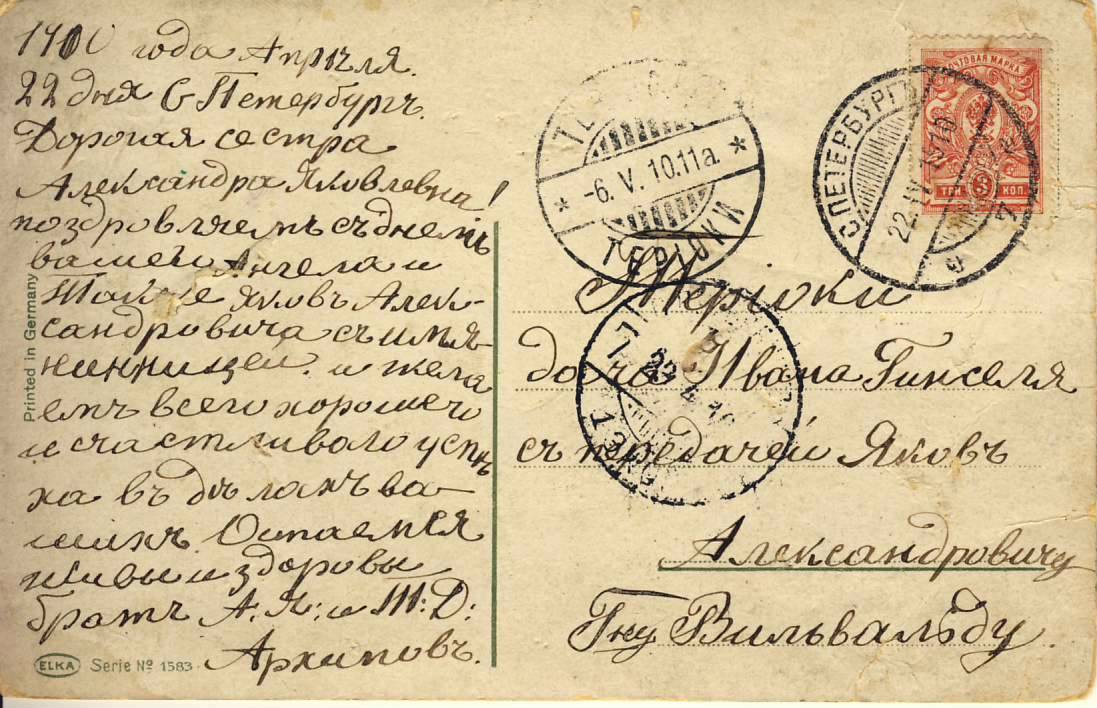 1910 года Апрѣля.
22 дня С Петербургъ.
Дорогая сестра
Александра Яковлевна!
поздровляемъ съ днемъ
вашей Ангела и
Также Яковъ Алек-
сандровича съ имя-
нинницей. и жела
емъ всего хорошего
и счастливого успѣ
ха въ дѣлахъ ва-
шихъ. Остаемся
живы и здоровы
братъ А. Я: и Т: Д:
Архиповъ.
Printed in Germany
ELKA Serie № 1583
ПОЧТОВАЯ МАРКА
ТРИ 3 КОП.
С.ПЕТЕРБУРГЪ
22 IV 1910
7
-6. V. 10.11a.
ТЕРIОКИ
Терiоки
дача Ивана Гинселя
съ передачей Яковъ
Александровичу
Гну Вильвальду.